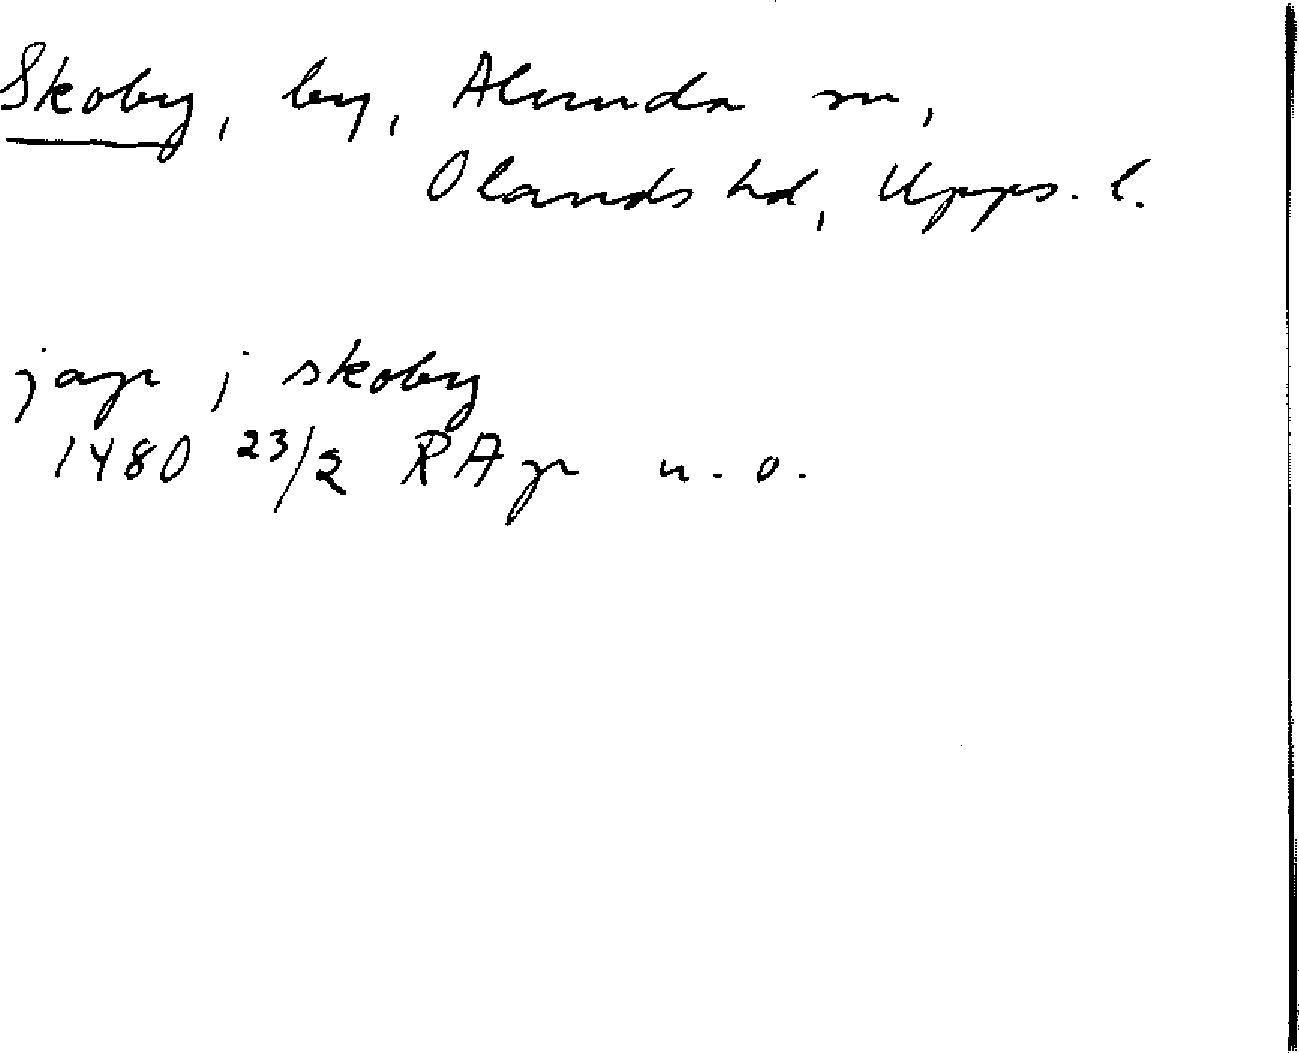 Skoby, by, Alunda sn,
Olands hd, Upps. l.
japr j skoby
1480 23/2 RApr u. o.